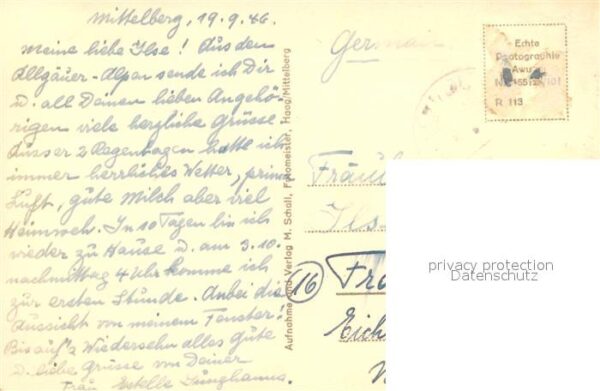 Mittelberg, 19.9.46.
Meine liebe Ilse! Aus den
Allgäuer-Alpen sende ich Dir
u. all Deinen lieben Angehö-
rigen viele herzliche Grüsse.
Ausser 2 Regentagen hatte ich
immer herrliches Wetter, prima
Luft, gute Milch aber viel
Heimweh. In 10 Tagen bin ich
wieder zu Hause u. am 3.10.
nachmittag 4 Uhr komme ich
zur ersten Stunde. Anbei die
Aussicht von meinem Fenster!
Bis auf's Wiedersehn alles Gute
u. liebe Grüsse von Deiner
Frau Estelle Junghanns.
Aufnahme und Verlag M. Schall, Fotomeister, Haag/Mittelberg
Germany
Echte
Photographie
R 113
Fräul
Ils
(16) Fra
Eich
privacy protection
Datenschutz